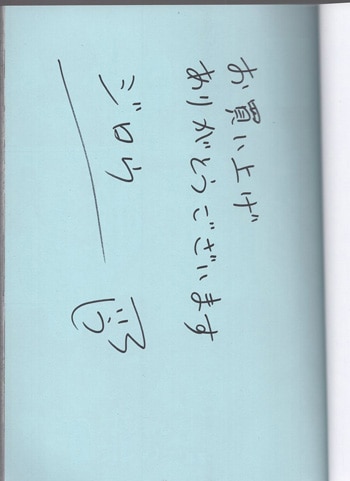 お買い上げ
ありがとうございます
ジロウ